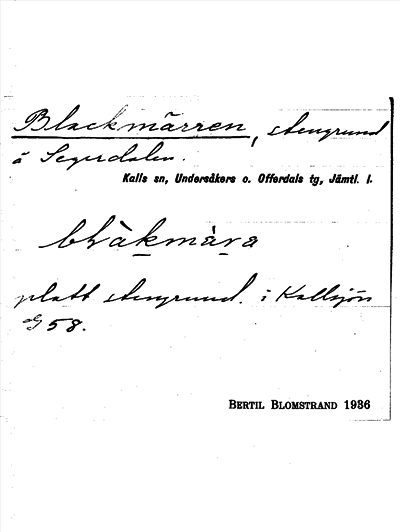 Blackmärren, stengrund
å Segerdalen.
Kalls sn, Undersåkers o. Offerdals tg, Jämtl. l.
blàkmàra
platt stengrund. i Kallsjön
58.
BERTIL BLOMSTRAND 1936